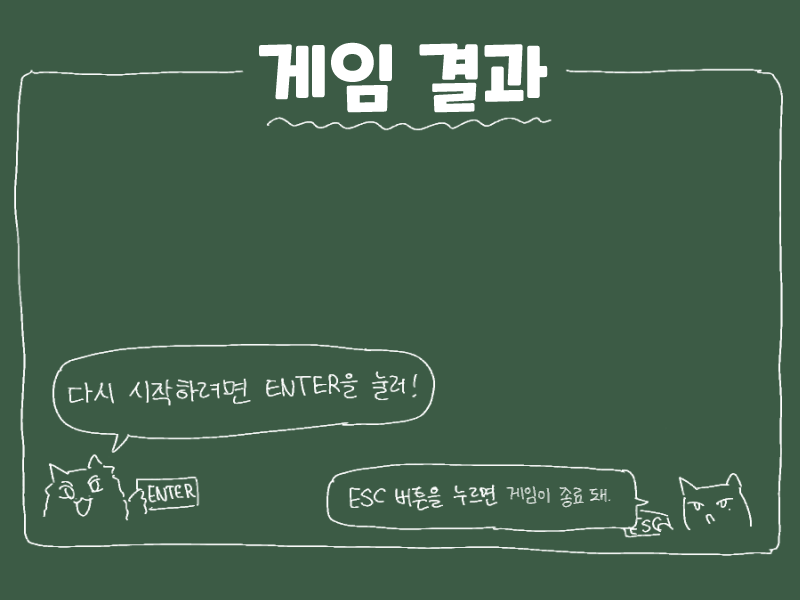 게임 결과
다시 시작하려면 ENTER을 눌러!
ENTER
ESC 버튼을 누르면 게임이 종료 돼.
ESC